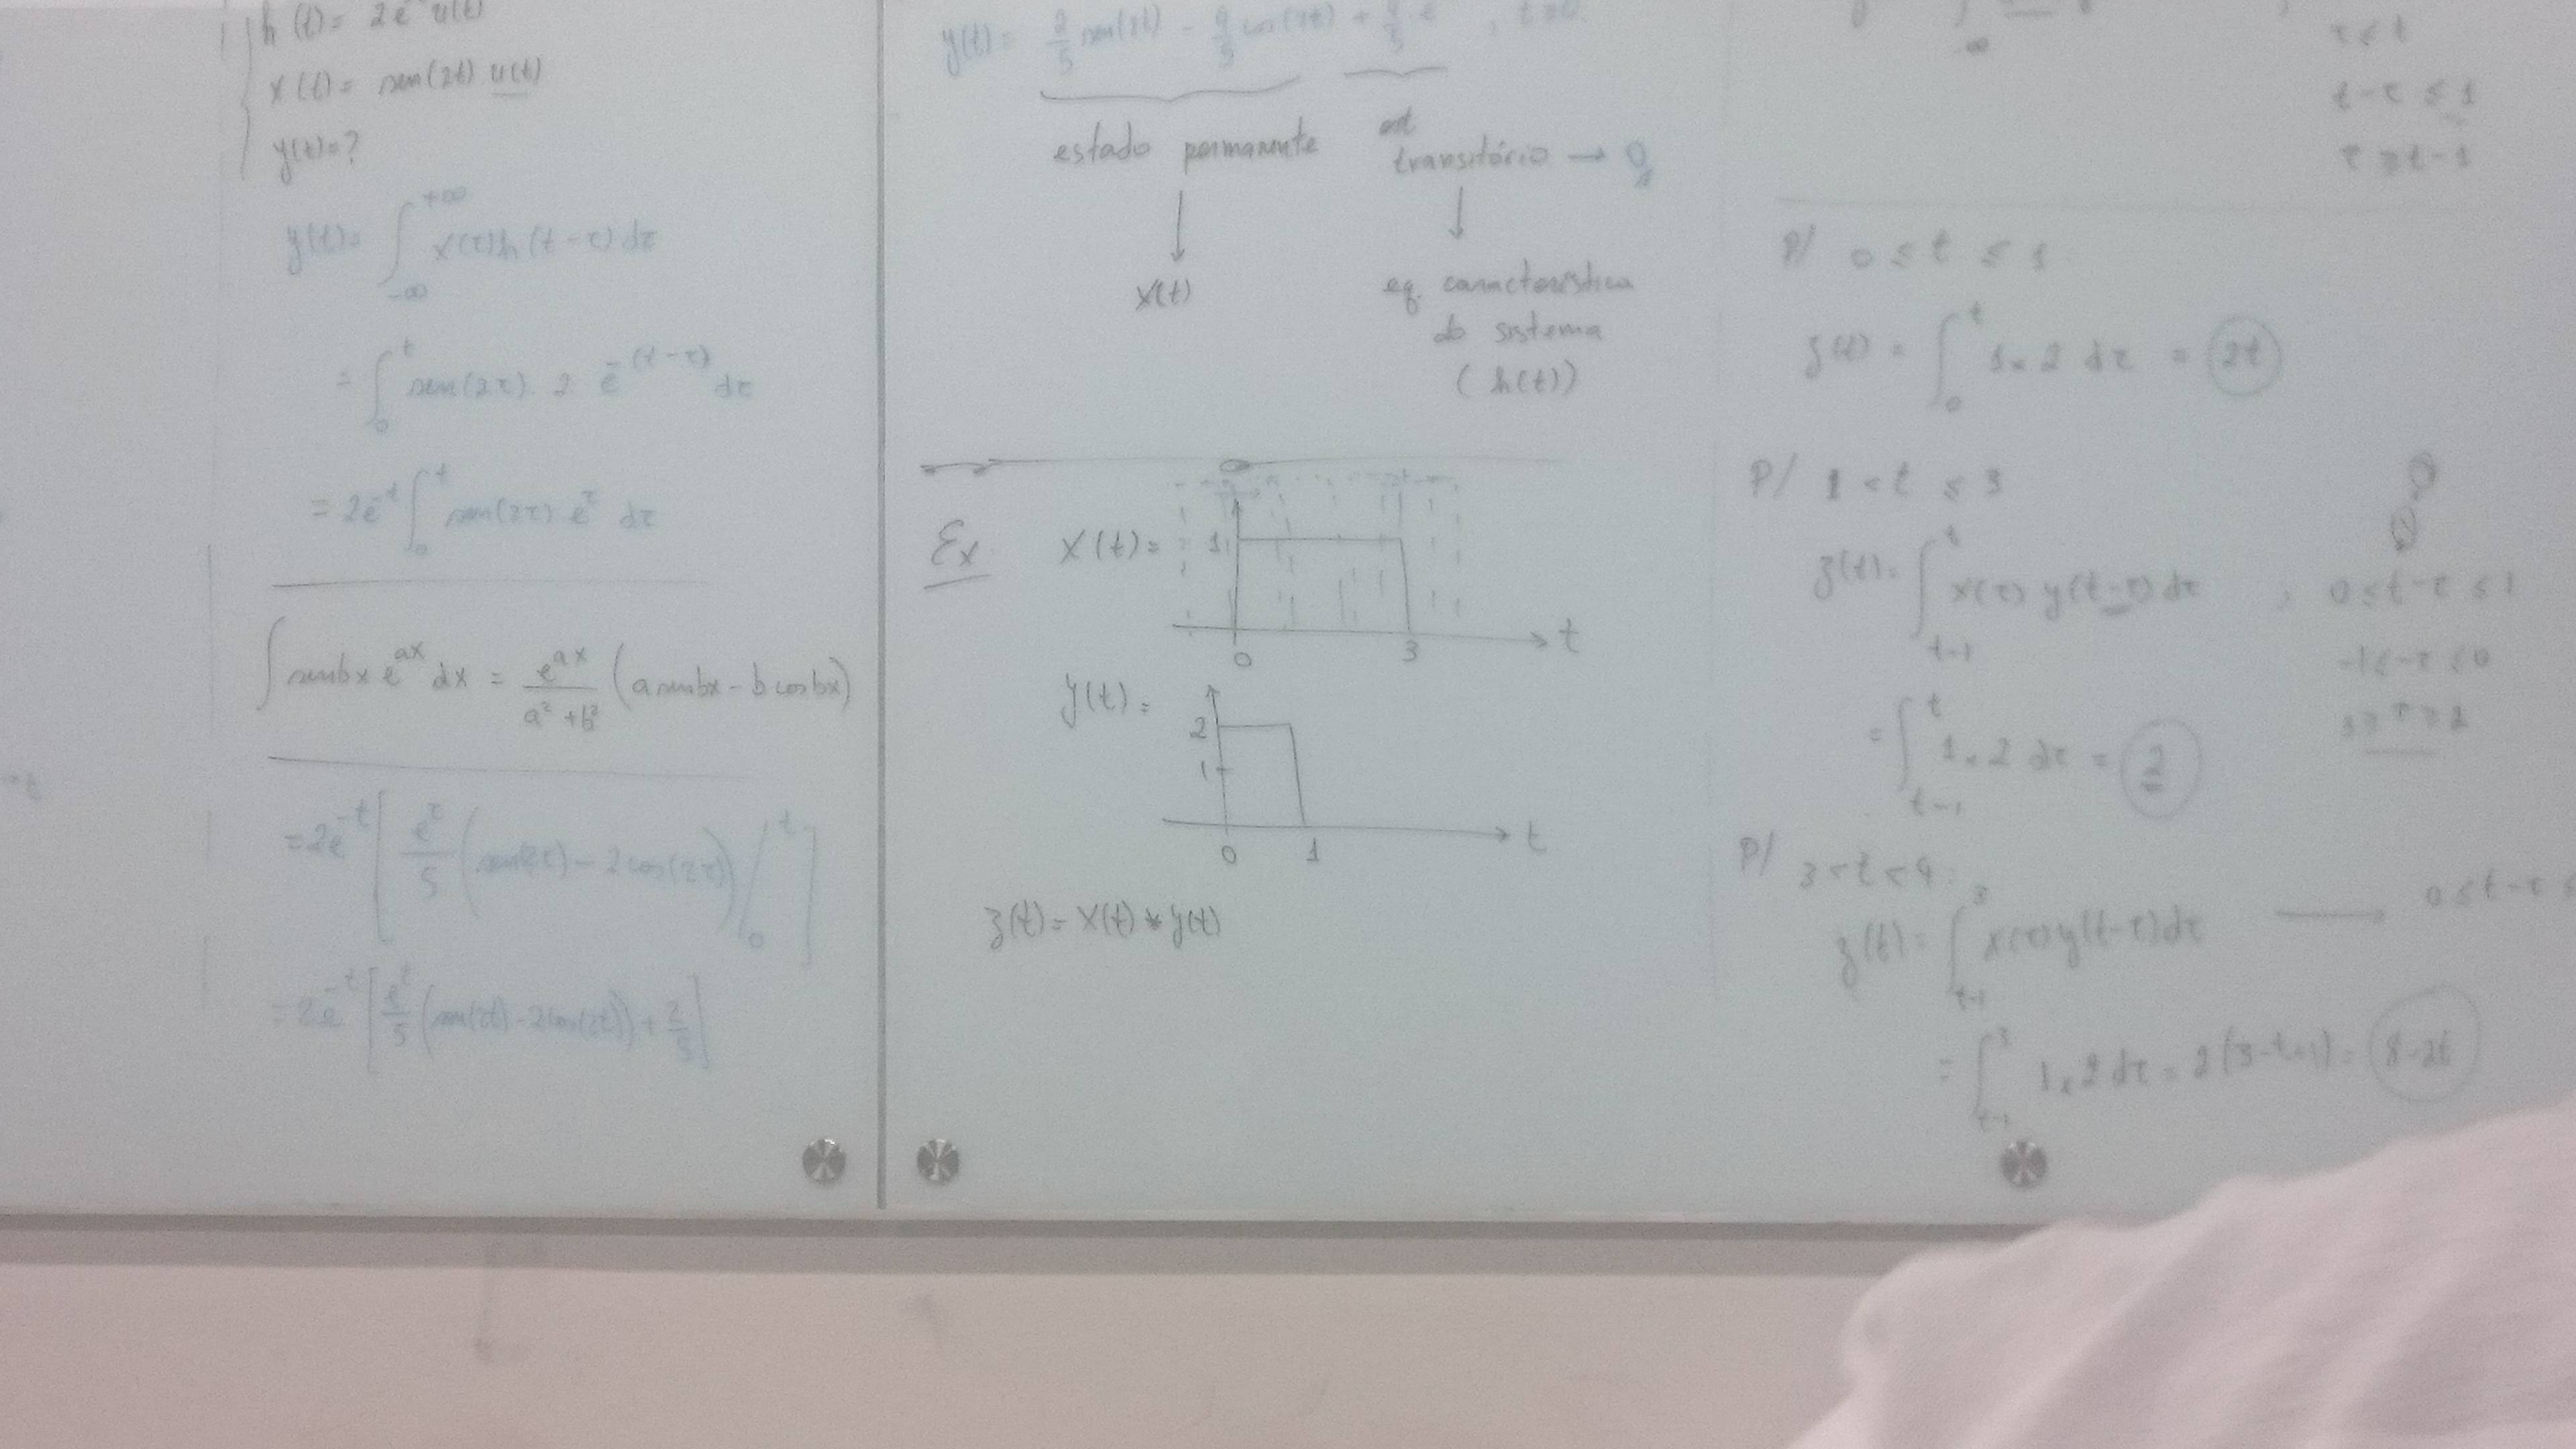 h(t) = 2e⁻ u(t)
x(t) = sen(2t) u(t)
y(t) = ?
y(t) = ∫_{-∞}^{+∞} x(τ) h(t-τ) dτ
= ∫_0^t sen(2τ) . 2 e^{-(t-τ)} dτ
= 2e^{-t} ∫_0^t sen(2τ) e^τ dτ
∫ senbx e^{ax} dx = e^{ax}/(a²+b²) (a senbx - b cosbx)
= 2e^{-t} [ e^τ/5 (sen(2τ) - 2cos(2τ)) |_0^t ]
= 2e^{-t} [ e^t/5 (sen(2t) - 2cos(2t)) + 2/5 ]
y(t) = 2/5 sen(2t) - 4/5 cos(2t) + 4/5
estado permanente
est transitório → 0
x(t)
eq. característica
do sistema
(h(t))
Ex
x(t) =
1
0 3 t
y(t) =
2
1
0 1 t
z(t) = x(t) * y(t)
τ ≤ t
t-τ ≤ 1
τ ≥ t-1
P/ 0 ≤ t ≤ 1
z(t) = ∫_0^t 1×2 dτ = 2t
P/ 1 < t ≤ 3
z(t) = ∫_{t-1}^t x(τ) y(t-τ) dτ , 0 ≤ t-τ ≤ 1
= ∫_{t-1}^t 1×2 dτ = 2
P/ 3 < t < 4
z(t) = ∫_{t-1}^3 x(τ) y(t-τ) dτ → 0 ≤ t-τ ≤
= ∫_{t-1}^3 1×2 dτ = 2(3-t+1) = 8-2t